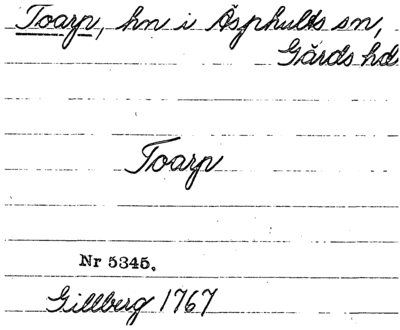 Toarp, hn i Äsphults sn,
Gärds hd
Toarp
Nr 5345.
Gillberg 1767